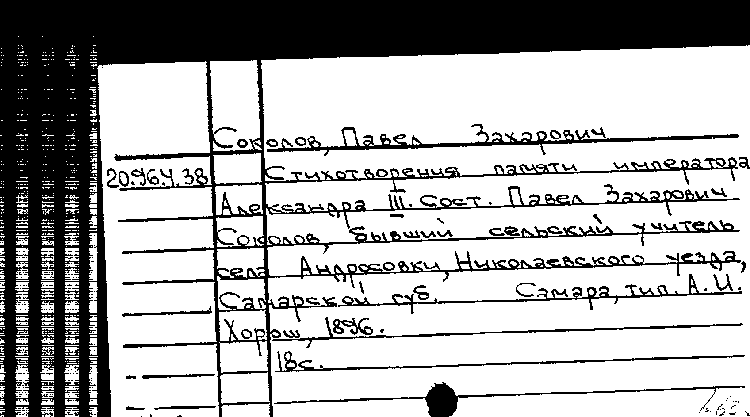 Соколов, Павел Захарович
20.96.4.38 Стихотворения памяти императора
Александра III. Сост. Павел Захарович
Соколов, бывший сельский учитель
села Андросовки, Николаевского уезда,
Самарской губ. Самара, тип. А. И.
Хорош, 1896.
18с.